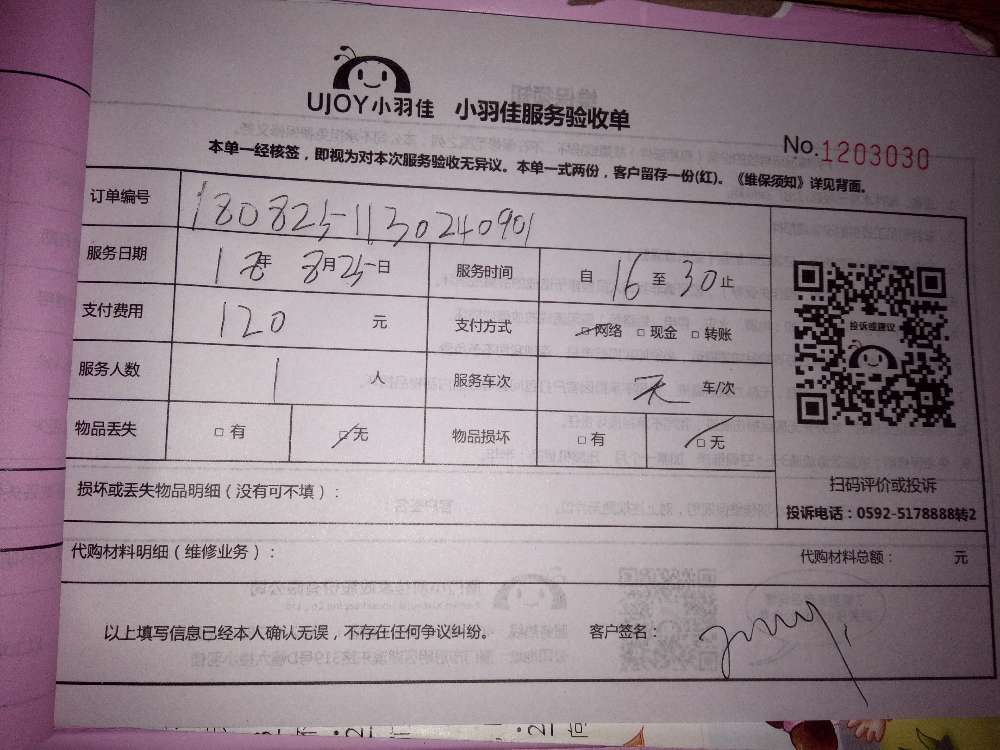 UJOY小羽佳 小羽佳服务验收单
No.1203030
本单一经核签，即视为对本次服务验收无异议。本单一式两份，客户留存一份(红)。《维保须知》详见背面。
订单编号 180825-1130240901
服务日期 18年 8月25日 服务时间 自16至30止
支付费用 120 元 支付方式 □网络 □现金 □转账
服务人数 1 人 服务车次 无 车/次
物品丢失 □有 □无 物品损坏 □有 □无
损坏或丢失物品明细（没有可不填）：
投诉或建议
扫码评价或投诉
投诉电话：0592-5178888转2
代购材料明细（维修业务）： 代购材料总额： 元
以上填写信息已经本人确认无误，不存在任何争议纠纷。 客户签名：